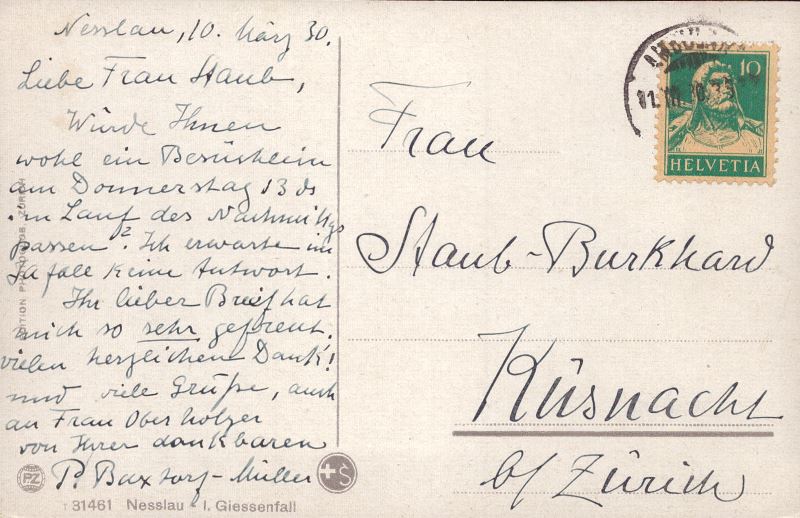 Nesslau, 10. März 30.
Liebe Frau Staub,
Würde Ihnen
wohl ein Besüchlein
am Donnerstag 13 ds
im Lauf des Nachmittgs
passen? Ich erwarte im
Ja falle keine Antwort.
Ihr lieber Brief hat
mich so sehr gefreut.
vielen herzlichen Dank!
und viele Grüße, auch
an Frau Oberholzer
von Ihrer dankbaren
P. Buxtorf-Müller
31461 Nesslau - I. Giessenfall
PZ
S
EDITION PHOTOGLOB, ZÜRICH
10
HELVETIA
Frau
Staub-Burkhard
Küsnacht
b/Zürich